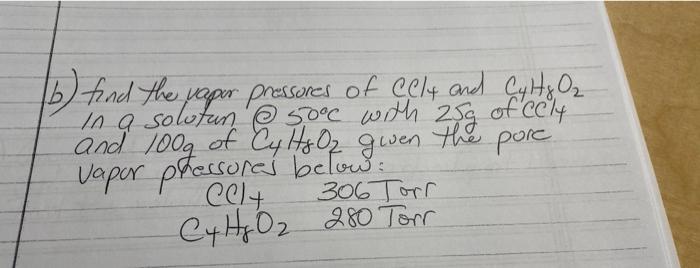 b) find the vapor pressures of CCl4 and C4H8O2
in a solutun @ 50°C with 25g of CCl4
and 100g of C4H8O2 given the pore
vapor pressures below:
CCl4 306 Torr
C4H8O2 280 Torr